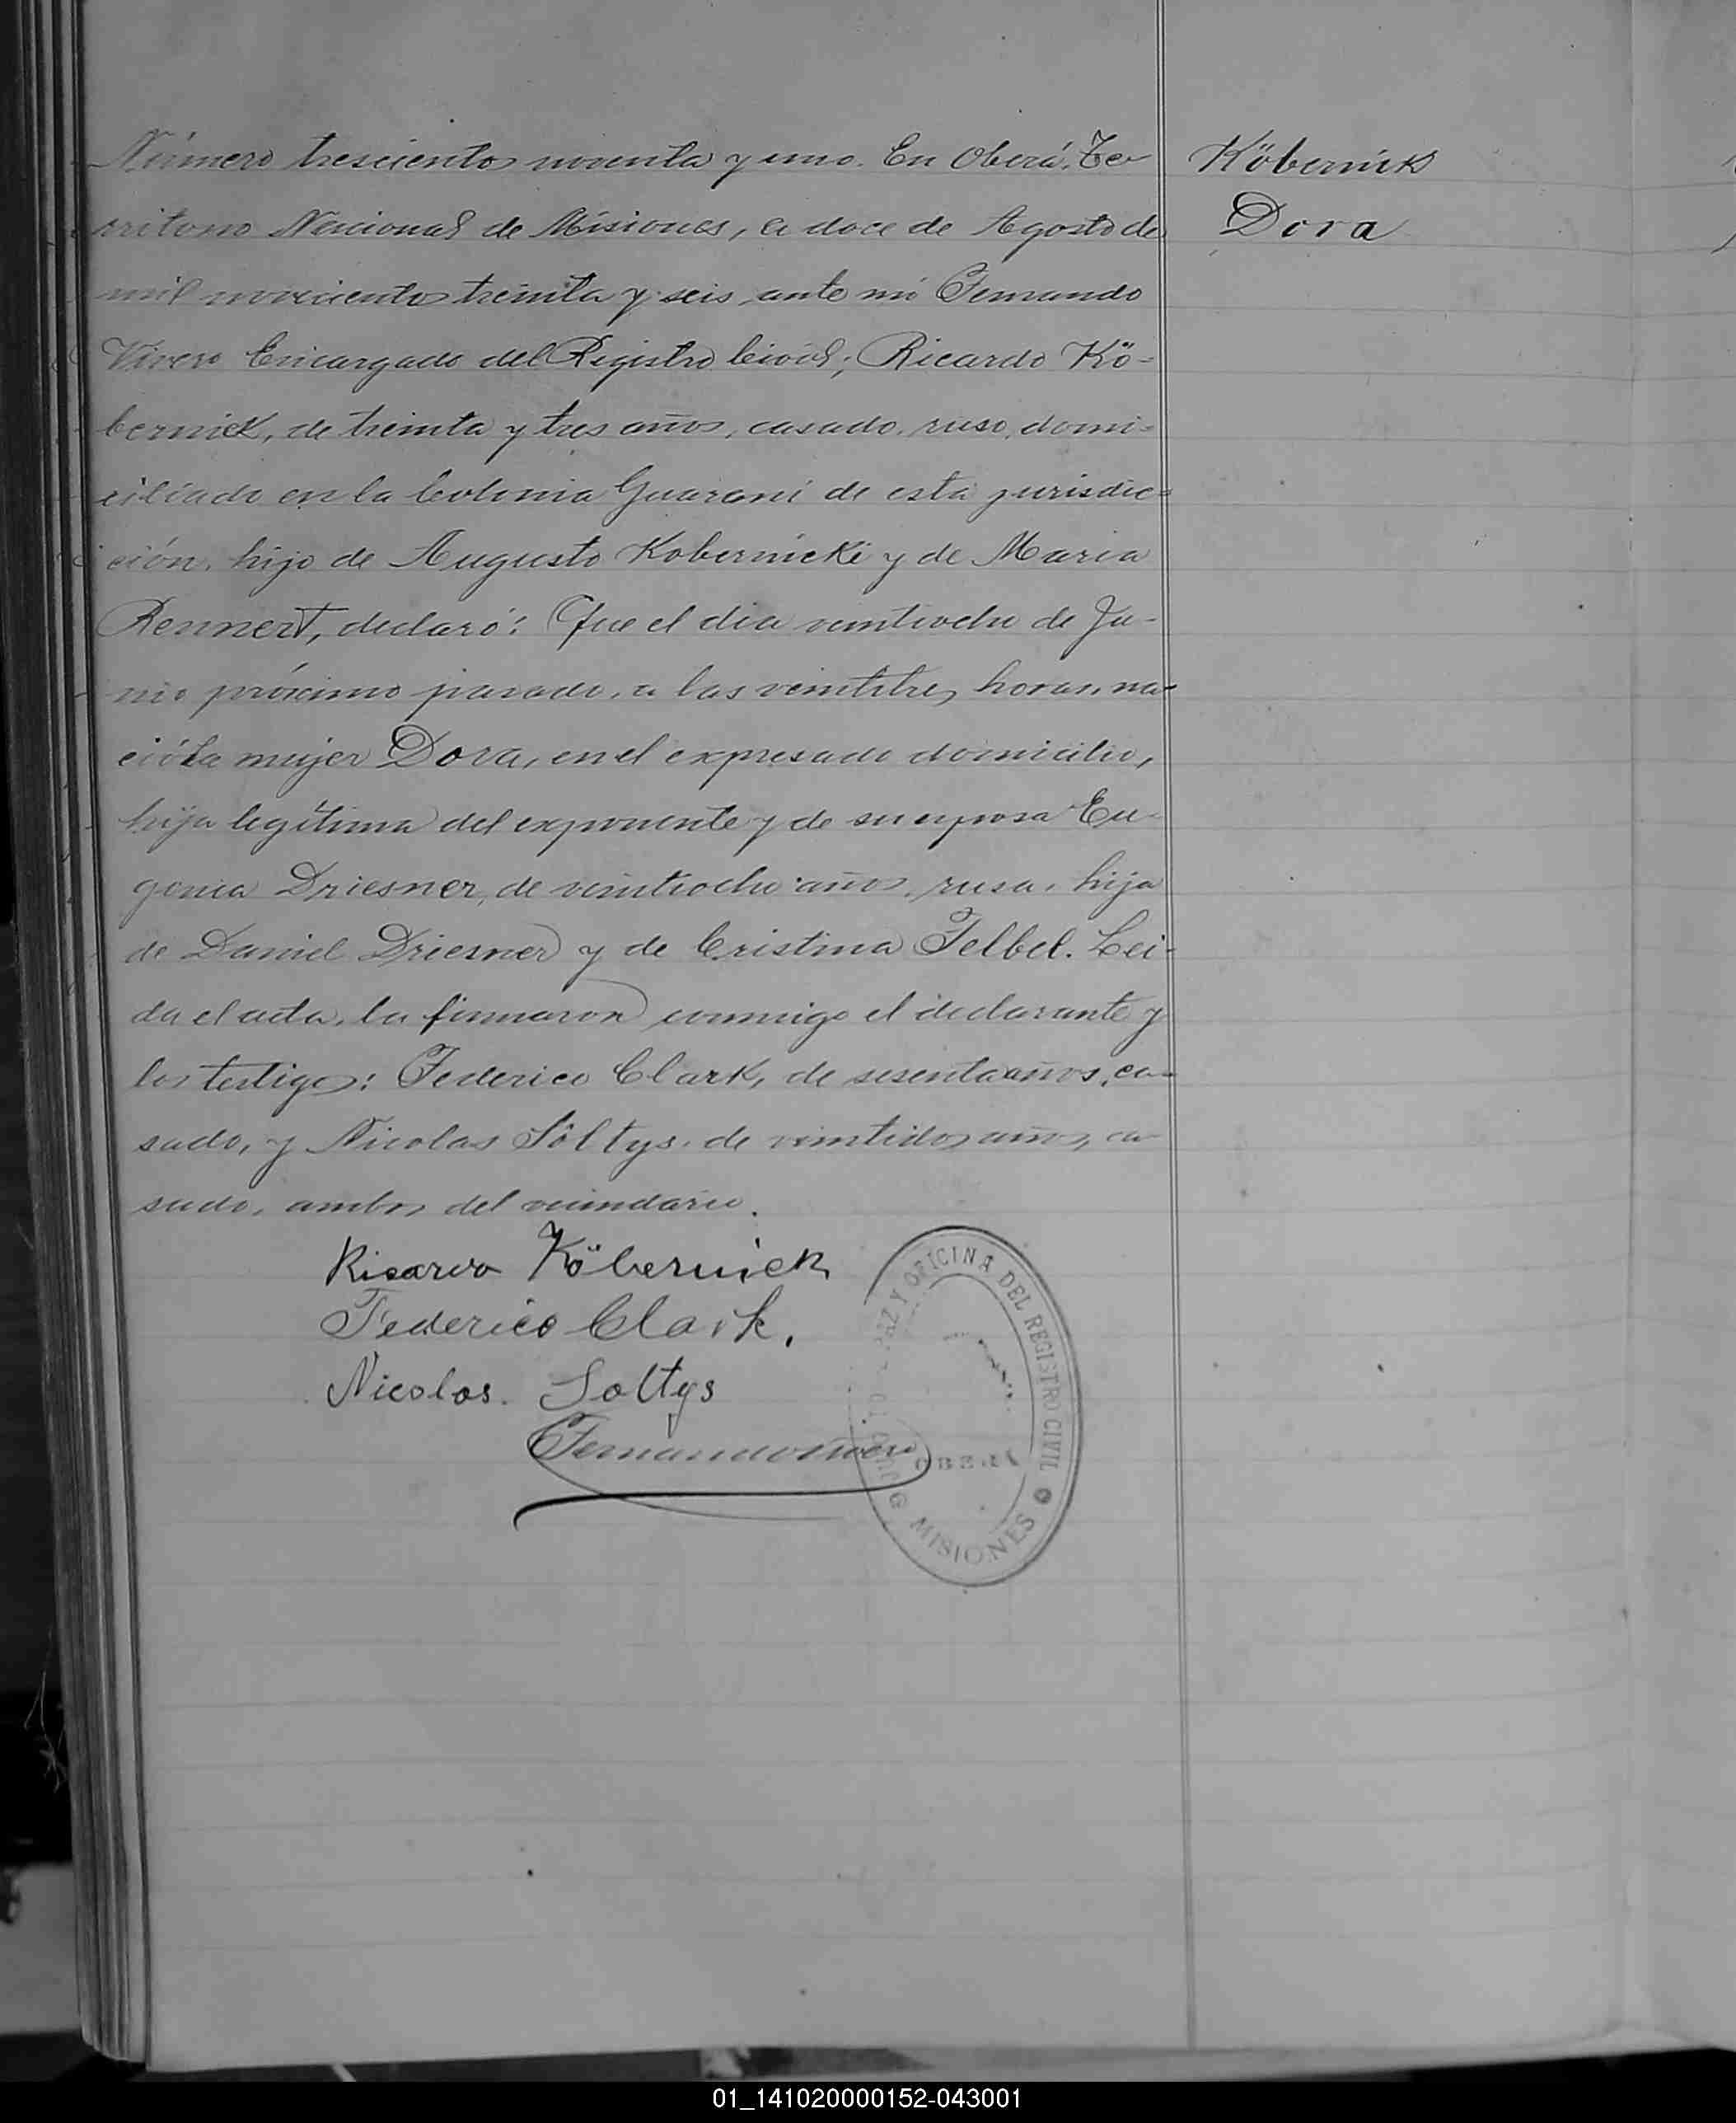 Número trescientos noventa y uno. En Oberá, Te-
rritorio Nacional de Misiones, a doce de Agosto de
mil novecientos treinta y seis, ante mi Fernando
Vivero Encargado del Registro Civil; Ricardo Kö-
bernick, de treinta y tres años, casado, ruso, domi-
ciliado en la Colonia Guaraní de esta jurisdic-
ción, hijo de Augusto Kobernicke y de Maria
Rennert, declaró: Que el dia veintiocho de Ju-
nio próximo pasado, a las veintitres horas, na-
ció la mujer Dora, en el expresado domicilio,
hija legítima del exponente y de su esposa Eu-
genia Driesner, de veintiocho años, rusa, hija
de Daniel Driesner y de Cristina Felbel. Lei-
da el acta, la firmaron conmigo el declarante y
los testigos: Federico Clark, de sesenta años, ca-
sado, y Nicolas Soltys, de veintidos años, ca-
sado, ambos del vecindario.
Ricardo Köbernick
Federico Clark.
Nicolas. Soltys
Fernando
PAZ Y OFICINA DEL REGISTRO CIVIL
OBERA
MISIONES
Köbernick
Dora
01_141020000152-043001